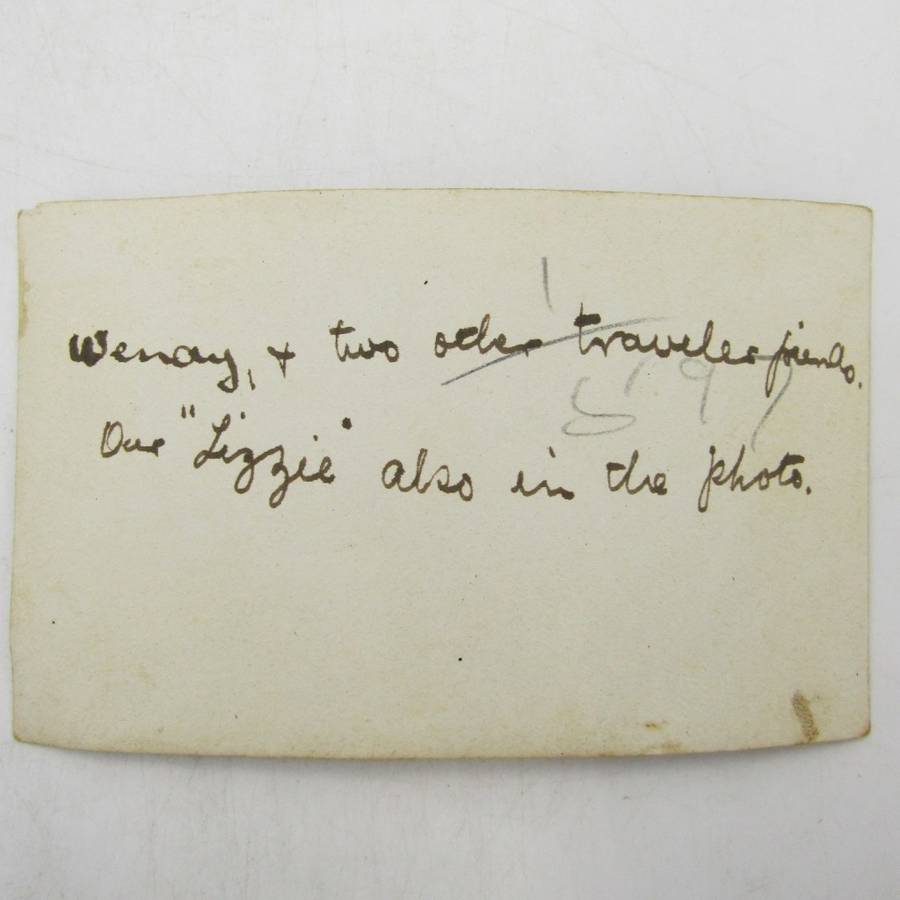 Wenday, + two other traveler friends.
Our "Lizzie" also in the photo.